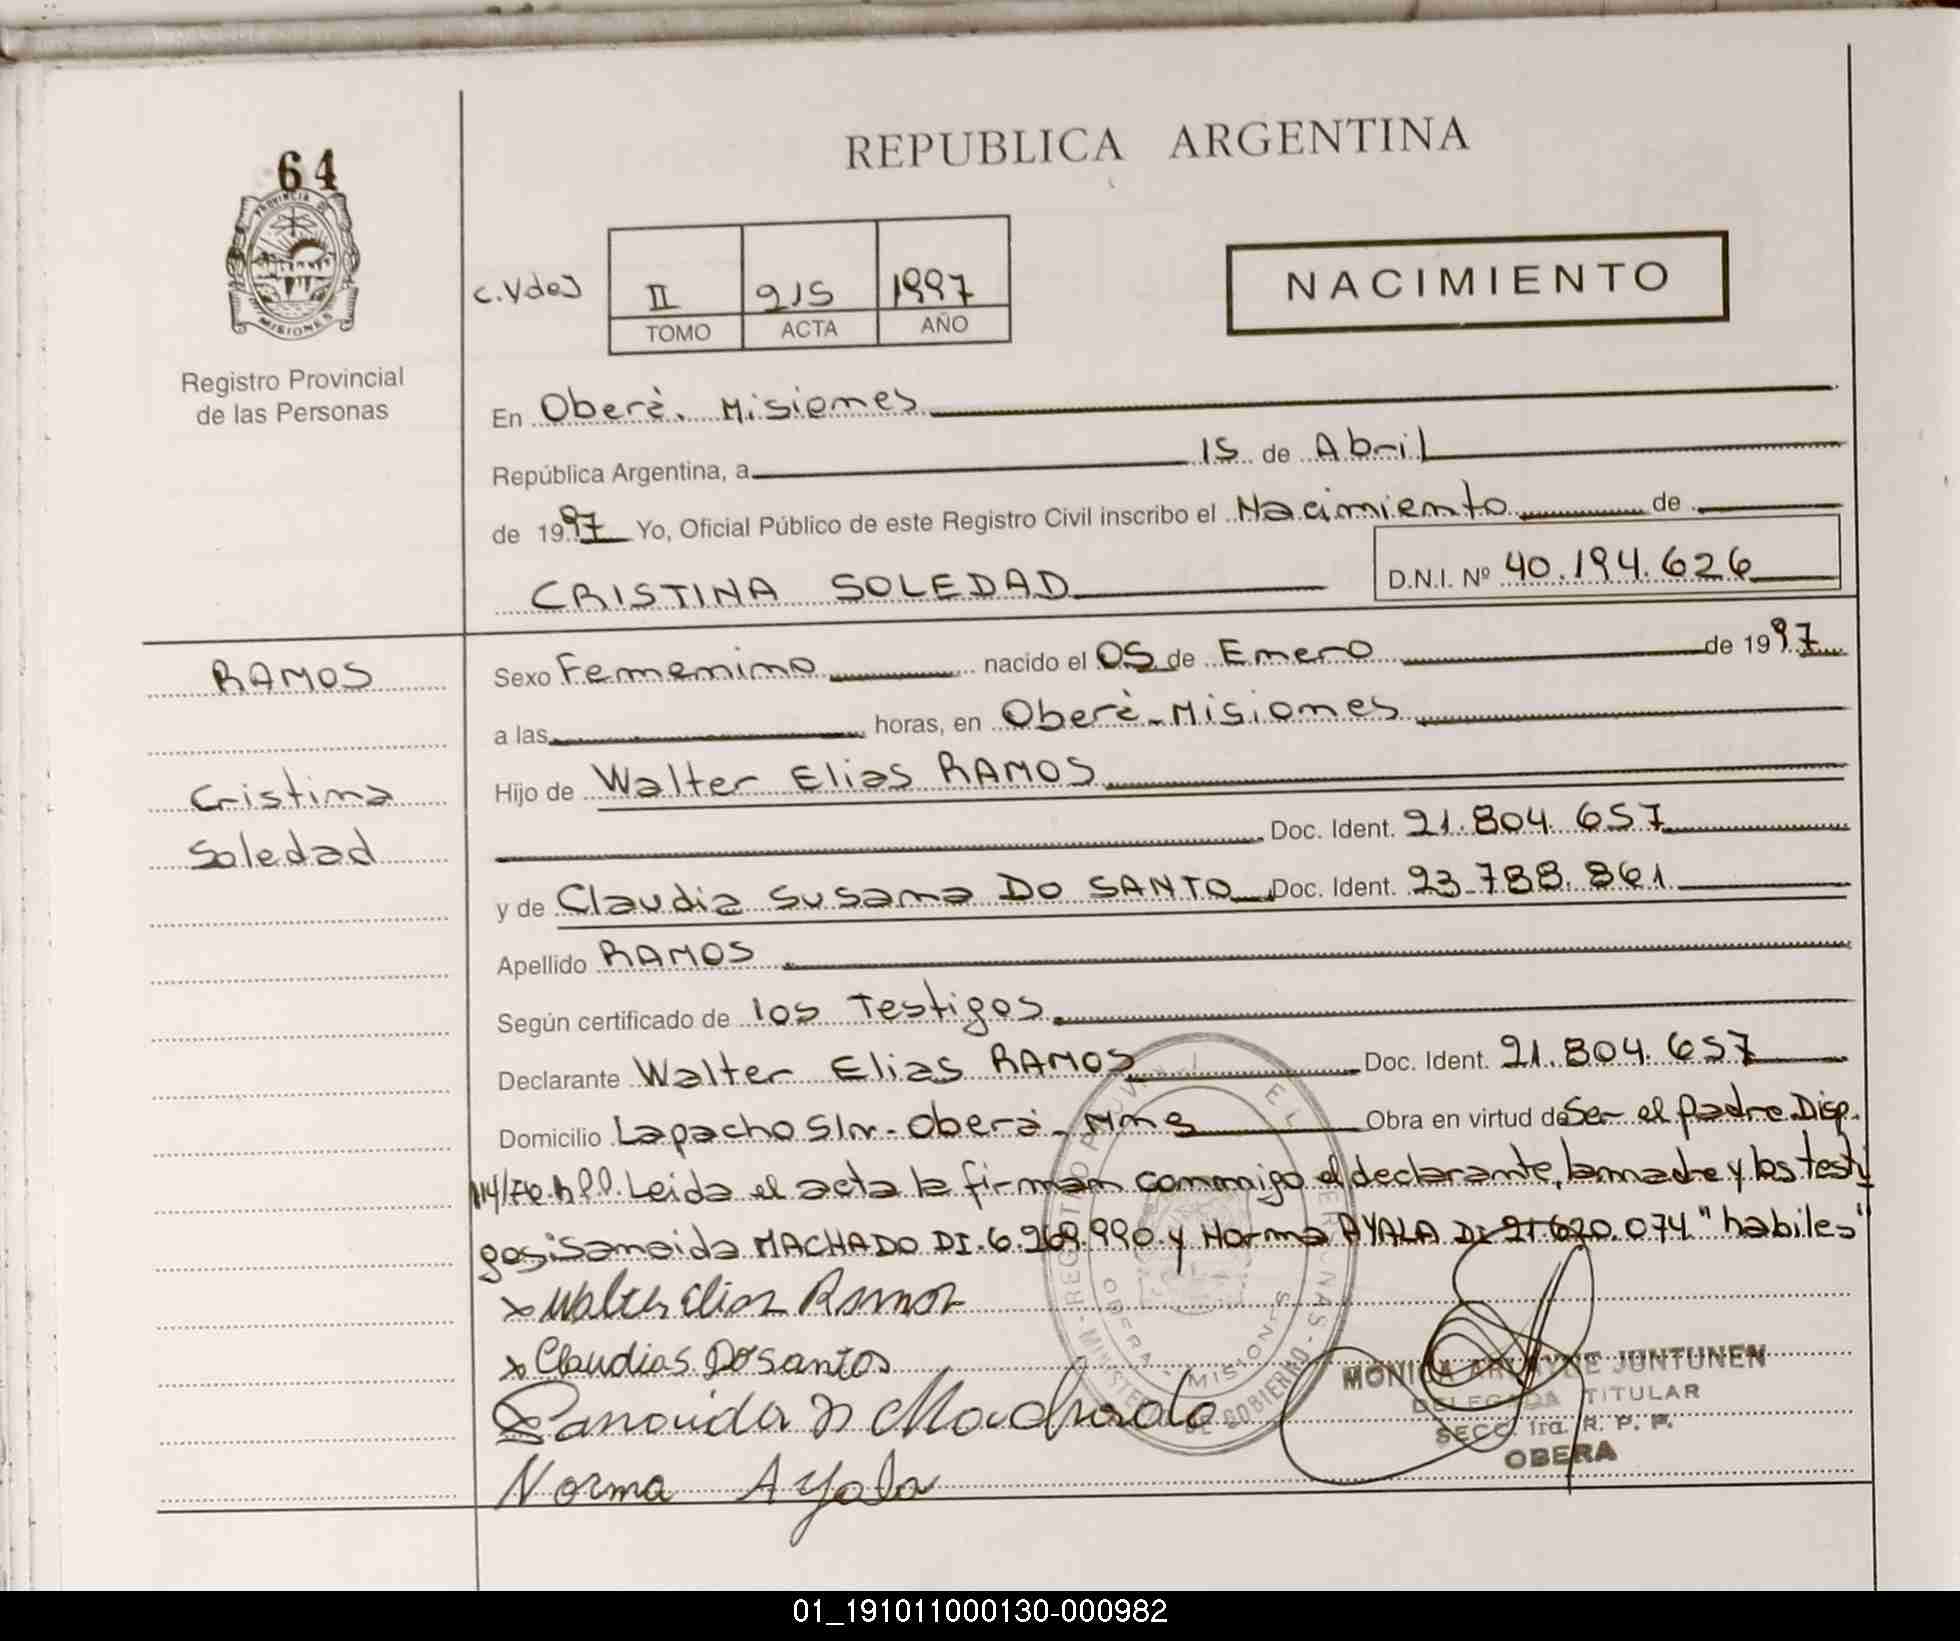 REPUBLICA ARGENTINA
64
PROVINCIA DE
MISIONES
Registro Provincial
de las Personas
c.Vdes
II 215 1997
TOMO ACTA AÑO
NACIMIENTO
En Oberà. Misiones
República Argentina, a 15 de Abril
de 1997 Yo, Oficial Público de este Registro Civil inscribo el Nacimiento de
CRISTINA SOLEDAD D.N.I. Nº 40.194.626
RAMOS
Cristina
Soledad
Sexo Femenino nacido el 05 de Enero de 1997
a las horas, en Oberà-Misiones
Hijo de Walter Elias RAMOS
Doc. Ident. 21.804.657
y de Claudia Susana DO SANTO Doc. Ident. 23.788.861
Apellido RAMOS
Según certificado de los Testigos
Declarante Walter Elias RAMOS Doc. Ident. 21.804.657
Domicilio Lapacho S/N-Oberà-Mnes Obra en virtud de Ser el padre.Disp.
114/72 Leida el acta la firman conmigo el declarante, la madre y los testi
gos: MACHADO DI.6.269.990 y Norma AYALA DI 21.620.074 "habiles"
x Walter Elias Ramos
x Claudia S. Do santos
Machado
Norma Ayala
MONICA JUNTUNEN
DELEGADA TITULAR
SECC. 1ra. R. P. P.
OBERA
OBERA - MISIONES
MINISTERIO DE GOBIERNO
01_191011000130-000982